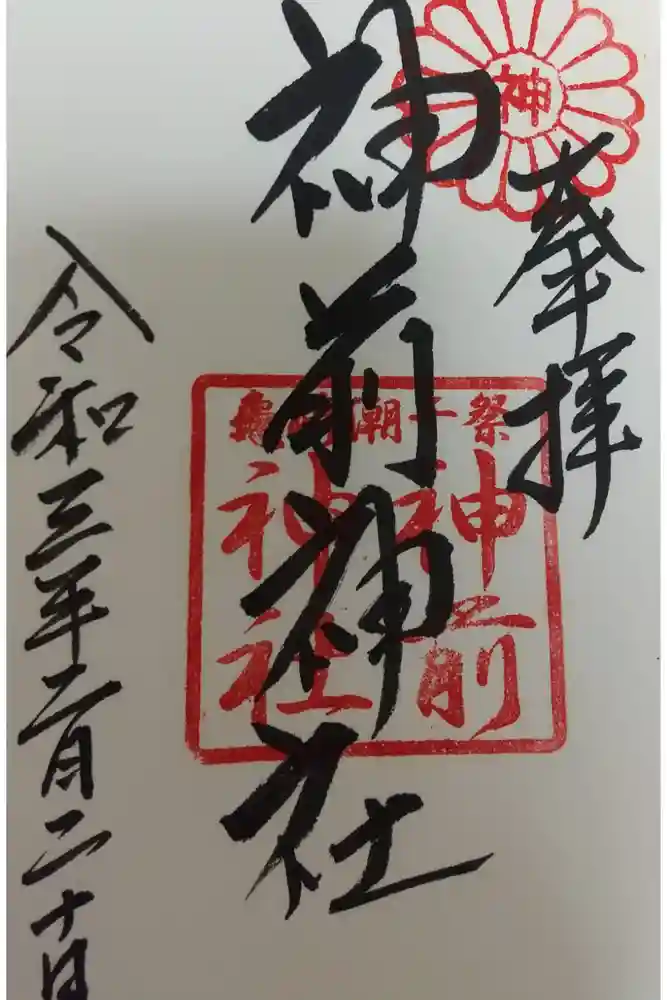 奉拝
神
神前神社
亀崎潮干祭
神前
神社
令和三年二月二十日